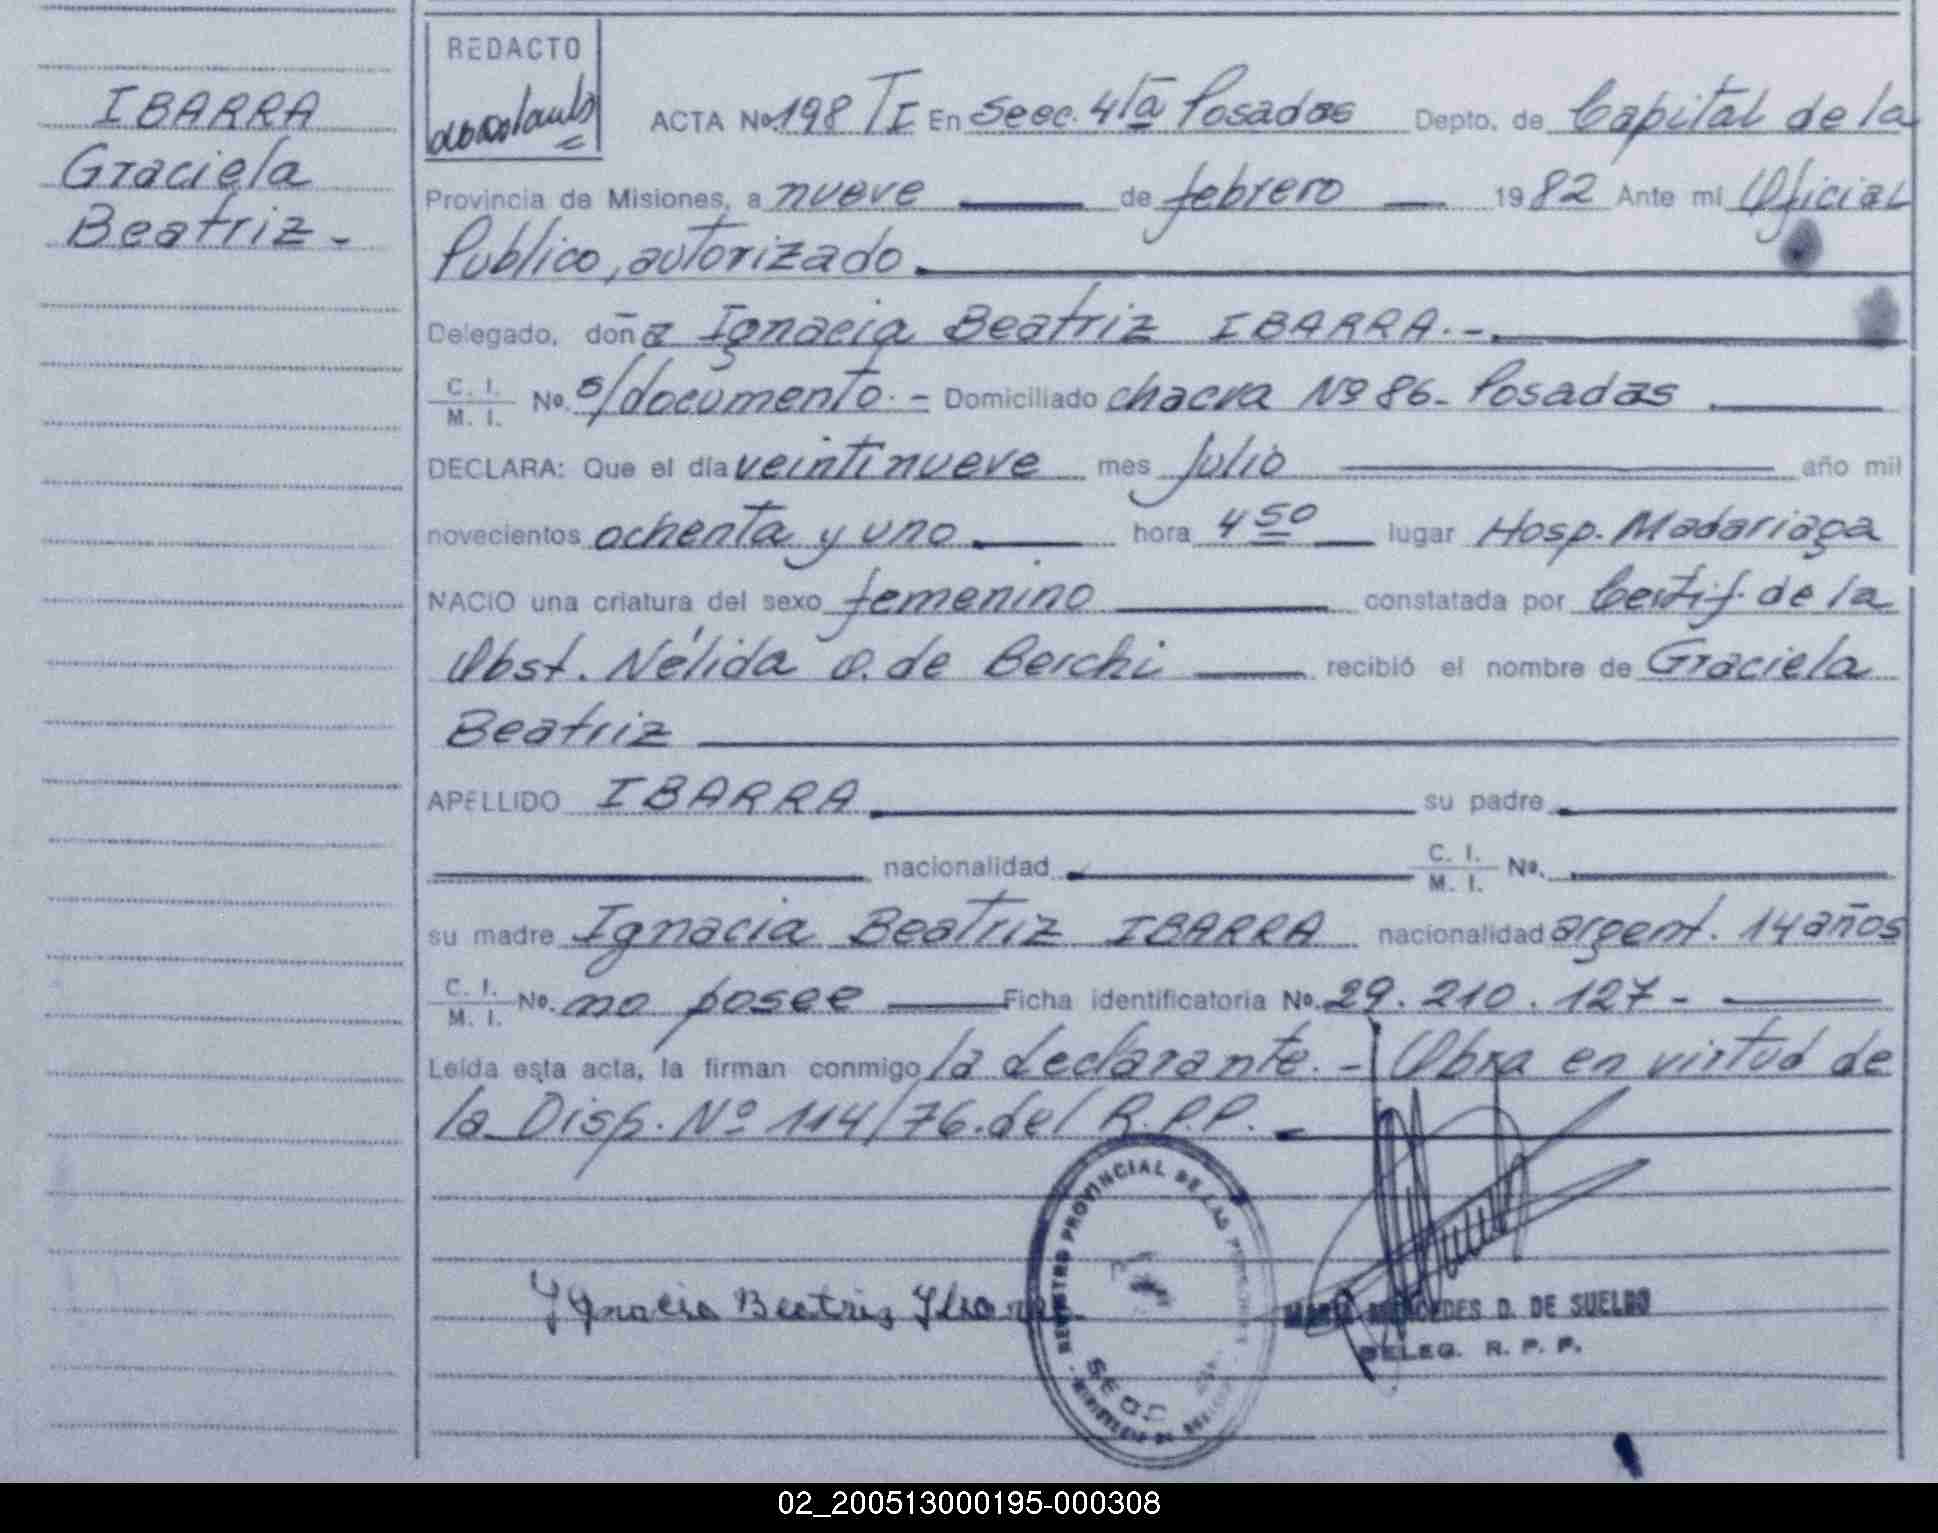 IBARRA
Graciela
Beatriz -
REDACTO
ACTA No. 198 TI En Secc. 4ta Posadas Depto. de Capital de la
Provincia de Misiones, a nueve de febrero 1982 Ante mí Oficial
Publico, autorizado.
Delegado, doña Ignacia Beatriz IBARRA. -
C. I.
M. I. No. s/documento. - Domiciliado chacra Nº 86 - Posadas
DECLARA: Que el día veintinueve mes julio año mil
novecientos ochenta y uno hora 4 50 lugar Hosp. Madariaga
NACIO una criatura del sexo femenino constatada por Certif. de la
Obst. Nélida O. de Berchi recibió el nombre de Graciela
Beatriz
APELLIDO IBARRA su padre
nacionalidad C. I.
M. I. No.
su madre Ignacia Beatriz IBARRA nacionalidad argent. 14 años
C. I.
M. I. No. no posee Ficha identificatoria No. 29.210.127 -
Leída esta acta, la firman conmigo la declarante. - Obra en virtud de
la Disp. Nº 114/76 del R.P.P. -
REGISTRO PROVINCIAL DE LAS PERSONAS
SECC
Ignacia Beatriz Ibarra
MARIA MERCEDES D. DE SUELDO
DELEG. R. P. P.
02_200513000195-000308